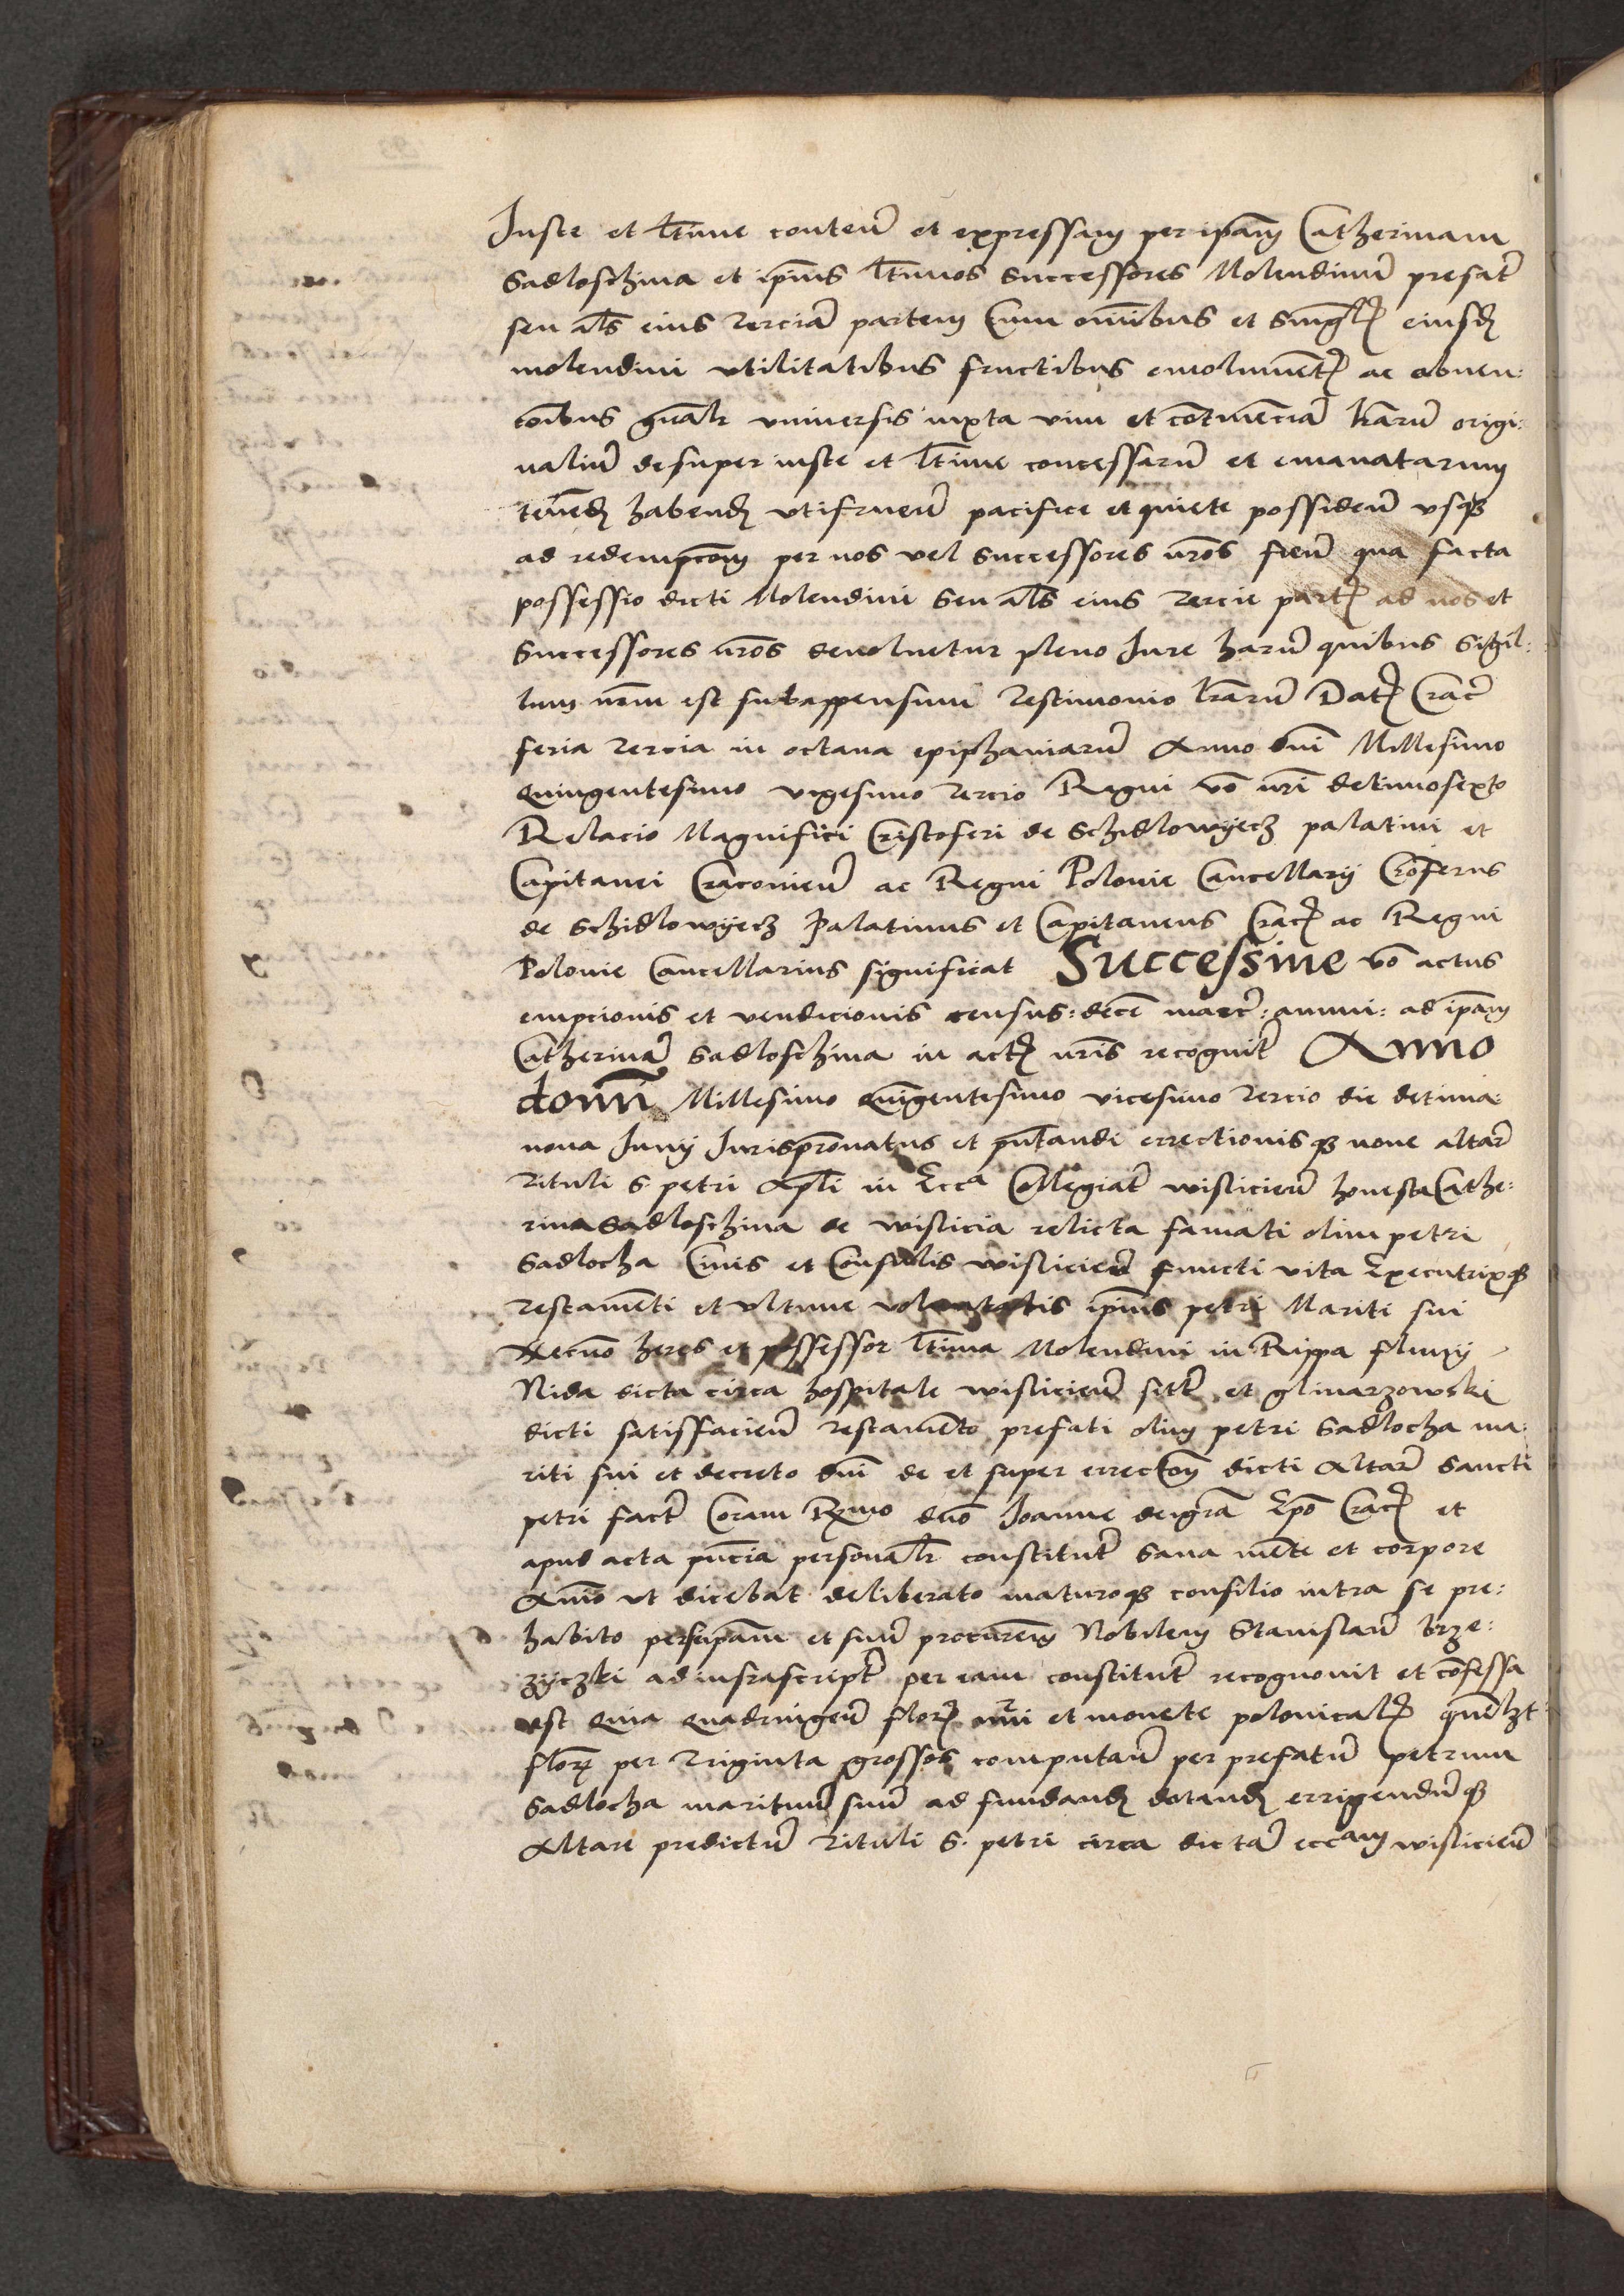 Juste et ltime conteñ et expressam per ipam Catherinam
Sadloschina et ipius ltimos successores Molendinũ prefat
seu als eius terciã partem Cum omnibus et singlis eiusd
molendini utilitatibus fructibus emolument ac obuen:
coibus gnalr universis iuxta vim et cõtinenciã lrarũ origi:
naliũ desuper iuste et ltime concessarũ et emanatarum
tenend habend utifrueñ pacifice et quiete possideñ usq
ad redempcom per nos vel successores nros fieñ qua facta
possessio dicti Molendini seu als eius tercie partis ad nos et
successores nros devoluetur pleno Jure harũ quibus sigil:
lum nrm est subappensum testimonio lrarũ Dat Crac
feria tercia in octava epiphaniarũ Anno dni Millesimo
quingentesimo vigesimo tercio Regni vo nri decimosexto
Relacio Magnifici Cristoferi de Schidlowyecz palatini et
Capitanei Cracovieñ ac Regni Polonie Cancellarij Crõferus
de Schidlowyecz Palatinus et Capitaneus Crac ac Regni
Polonie Cancellarius significat Successive vo actus
empcionis et vendicionis census: decẽ marc: annui: ad ipam
Catherinã Sadloschina in act nris recognit Anno
domi Millesimo quĩgentesimo vicesimo tercio die decima
nona Junij Jurispronatus et pñtandi erectionisq nove altar
tituli S. petri Apli in Ecca Collegiat wislicieñ honesta Cathe:
rina Sadloschina de wislicia relicta famati olim petri
Sadlocha Civis et Consulis wislicieñ functi vita Executrixq
testamenti et ultime voluntatis ipius petri Mariti sui
Necnõ heres et possessor ltima Molendini in Rippa fluvij
Nida dicta circa hospitale wislicieñ sitt et glinarzowski
dicti satisfacieñ testamento prefati olim petri Sadlocha ma:
riti sui et decreto dni de et super erectom dicti Altar Sancti
petri fact Coram Rmo dno Joanne dei gra Epo Crac et
apud acta pñcia personalr constitut sana mẽte et corpore
Animo ut dicebat deliberato maturoq consilio intra se pre:
habito per seipam et suũ procurem Nobilem Stanislaũ brze:
zyczki ad infrascript per eam constitut recognovit et cõfessa
est Quia quadringeñ flor nũi et monete polonicalis quẽlzt
flor per triginta grossos computañ per prefatũ petrum
Sadlocha maritum suũ ad fundand dotand errigendũq
Altare predictũ tituli S. petri circa dictã eccam wislicieñ